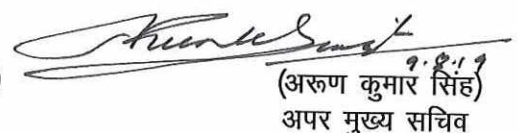 9.8.19
(अरूण कुमार सिंह)
अपर मुख्य सचिव